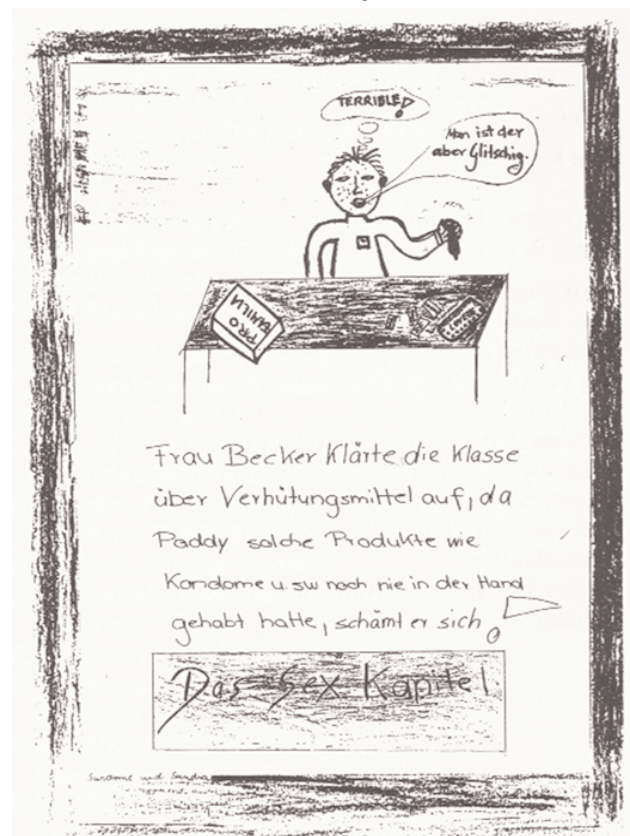 TERRIBLE!
Man ist der
aber Glitschig.
PRO
FAMILIA
Frau Becker Klärte die Klasse
über Verhütungsmittel auf, da
Paddy solche Produkte wie
Kondome u.sw noch nie in der Hand
gehabt hatte, schämt er sich!
Das Sex Kapitel
und Sandra